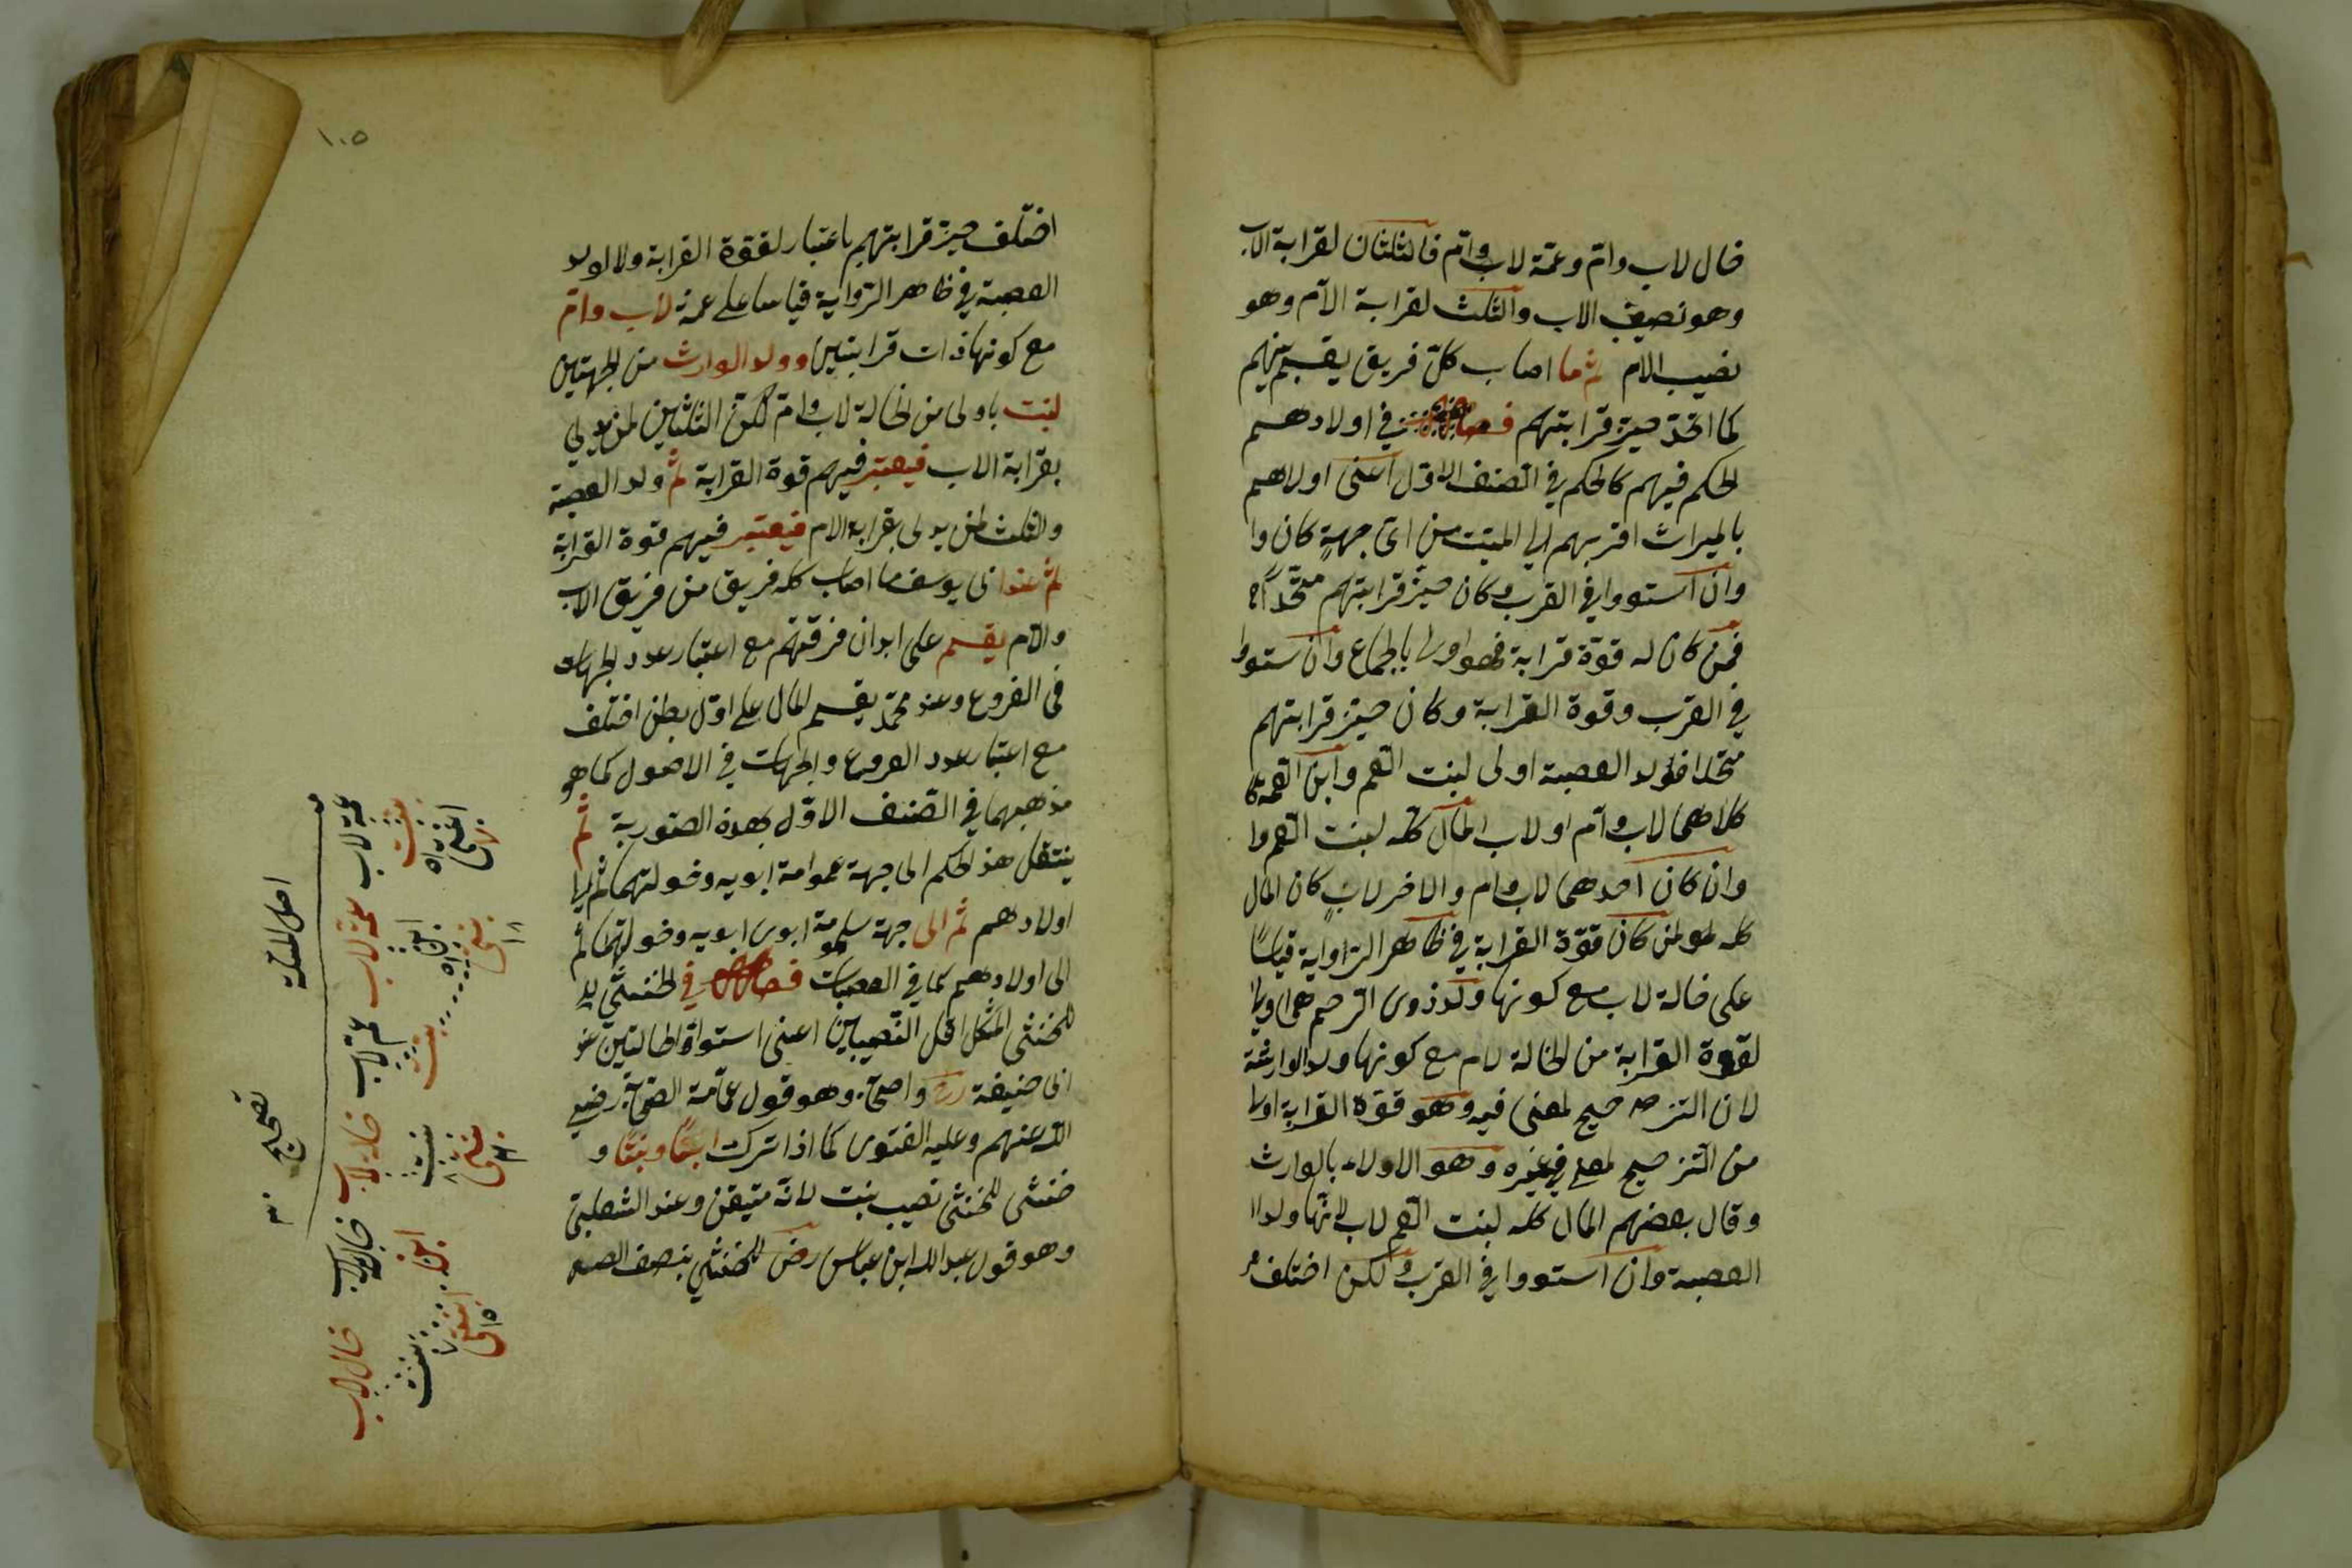 خال لاب وام وعمة لاب وام فالثلثان لقرابة الاب
وهو نصيب الاب والثلث لقرابة الام وهو
نصيب الام ثم ما اصاب كل فريق يقسم بينهم
كما اتحد حيز قرابتهم فصل في اولادهم
الحكم فيهم كالحكم في الصنف الاول اعنى اولاهم
بالميراث اقربهم الى الميت من اى جهة كان وا
وان استووا في القرب وكان حيز قرابتهم متحدا
فمن كان له قوة قرابة فهو اولى بالاجماع وان ستووا
في القرب وقوة القرابة وكان حيز قرابتهم
متحدا فولد العصبة اولى لبنت العم وابن العمة
كلاهما لاب وام او لاب المال كله لبنت العم وا
وان كان احدهما لاب وام والاخر لاب كان المال
كله لمن كان قوة القرابة في ظاهر الرواية قياسا
على خالة لاب مع كونها ولد ذوى الرحم هى اولى
لقوة القرابة من الخالة لام مع كونها ولد الوارثة
لان الترجيح لمعنى فيه وهو قوة القرابة اولى
من الترجيح لمعنى في غيره وهو الاولاء بالوارث
وقال بعضهم المال كله لبنت العم لاب لانها ولد ا
العصبة وان استووا في القرب ولكن اختلف
١٠٥
اختلف حيز قرابتهم باعتبار لقوة القرابة ولا لولد
العصبة في ظاهر الرواية قياسا على عمة لاب وام
مع كونها ذات قرابتين وولد الوارث من الجهتين
ليست باولى من الخالة لاب وام لكن الثلثين لمن يدلي
بقرابة الاب فيعتبر فيهم قوة القرابة ثم ولد العصبة
والثلث لمن يدلى بقرابة الام فيعتبر فيهم قوة القرابة
ثم عند ابى يوسف ما اصاب كل فريق من فريق الاب
والام يقسم على ابدان فرقتهم مع اعتبار عدد الجهات
فى الفروع وعند محمد يقسم المال على اول بطن اختلف
مع اعتبار عدد الفروع والجهات في الاصول كما هو
مذهبهما في الصنف الاول بهذه الصورية ثم
ينتقل هذ الحكم الى جهة عمومة ابويه وخولتهما ثم الى
اولادهم ثم الى جهة عمومة ابوى ابويه وخولتهما ثم
الى اولادهم كما في العصبات فصل في الخنثى
للخنثى المشكل اقل النصيبين اعنى استواء الحالتين عند
ابى حنيفة رح واصحابه وهو قول عامة الصحابة رضي
الله عنهم وعليه الفتوى كما اذا تركت ابنا وبنتا و
خنثى للخنثى نصيب بنت لانه متيقن وعند الشعبى
وهو قول عبد الله ابن عباس رض للخنثى بنصف
اصل المسئلة
تصحيح
عمة لاب عمة لاب عم لاب خالة لاب خالة لاب خال لاب
بنت ابن بنت بنت ابن بنت